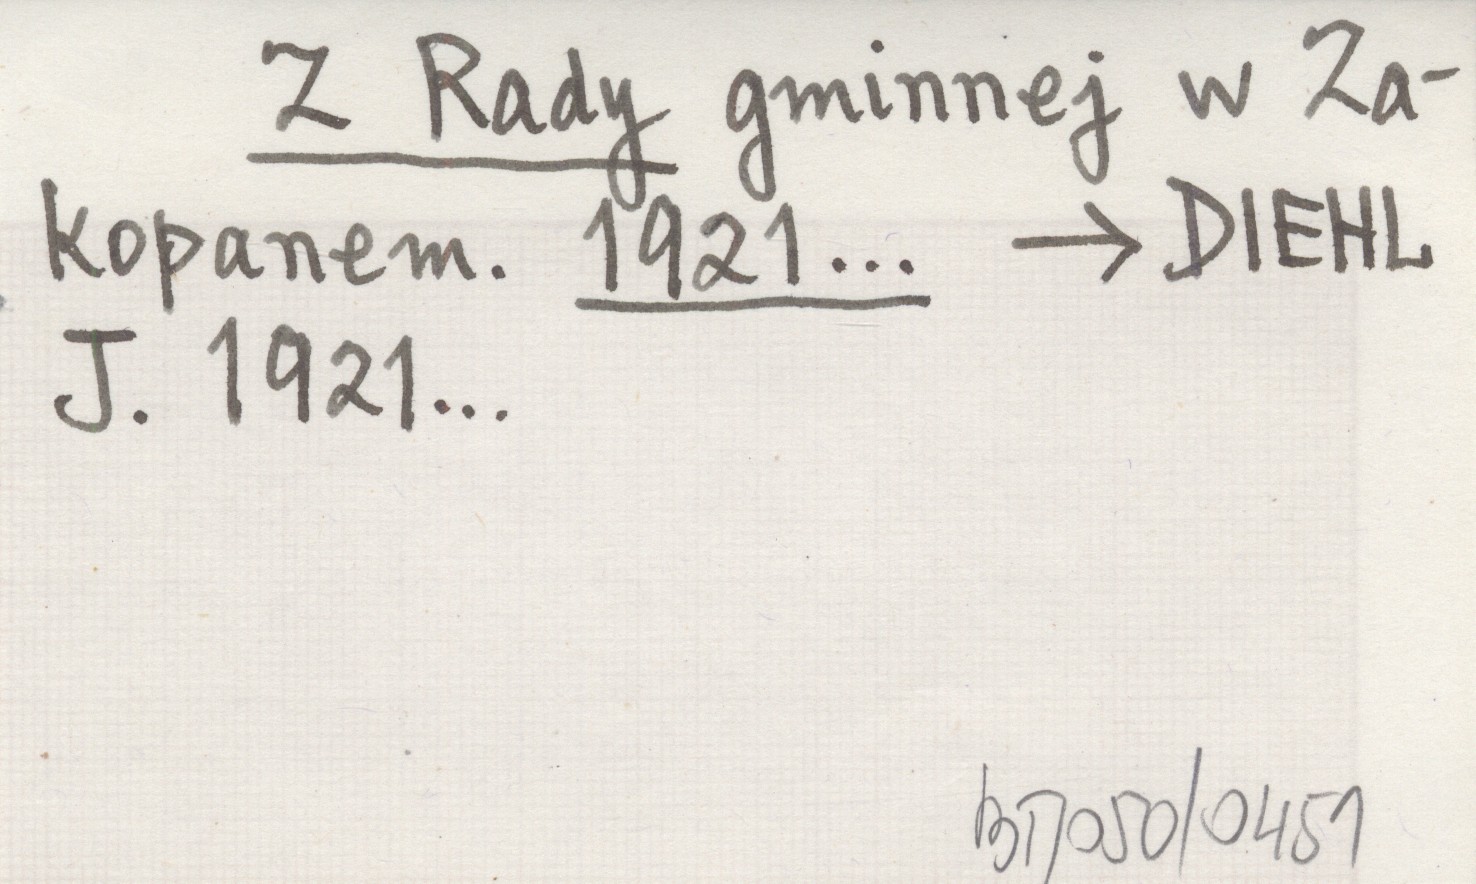 Z Rady gminnej w Za-
kopanem. 1921... → DIEHL
J. 1921...
bT/050/0451